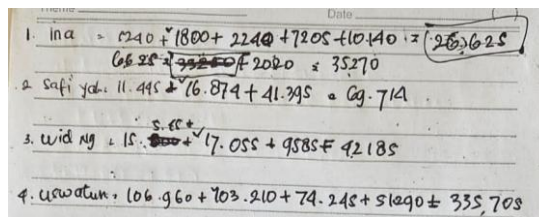 Date
1. Ina = 1240 + 1800 + 2240 + 7205 + 10.140 = 26.625
6625 + 2020 = 35270
2 Safi yah. 11.445 + 16.874 + 41.395 = 69.714
5.55 +
3. wid Ng = 15. + 17.055 + 9585 = 42185
4. uswatun, 106.960 + 103.210 + 74.245 + 51290 = 335.705